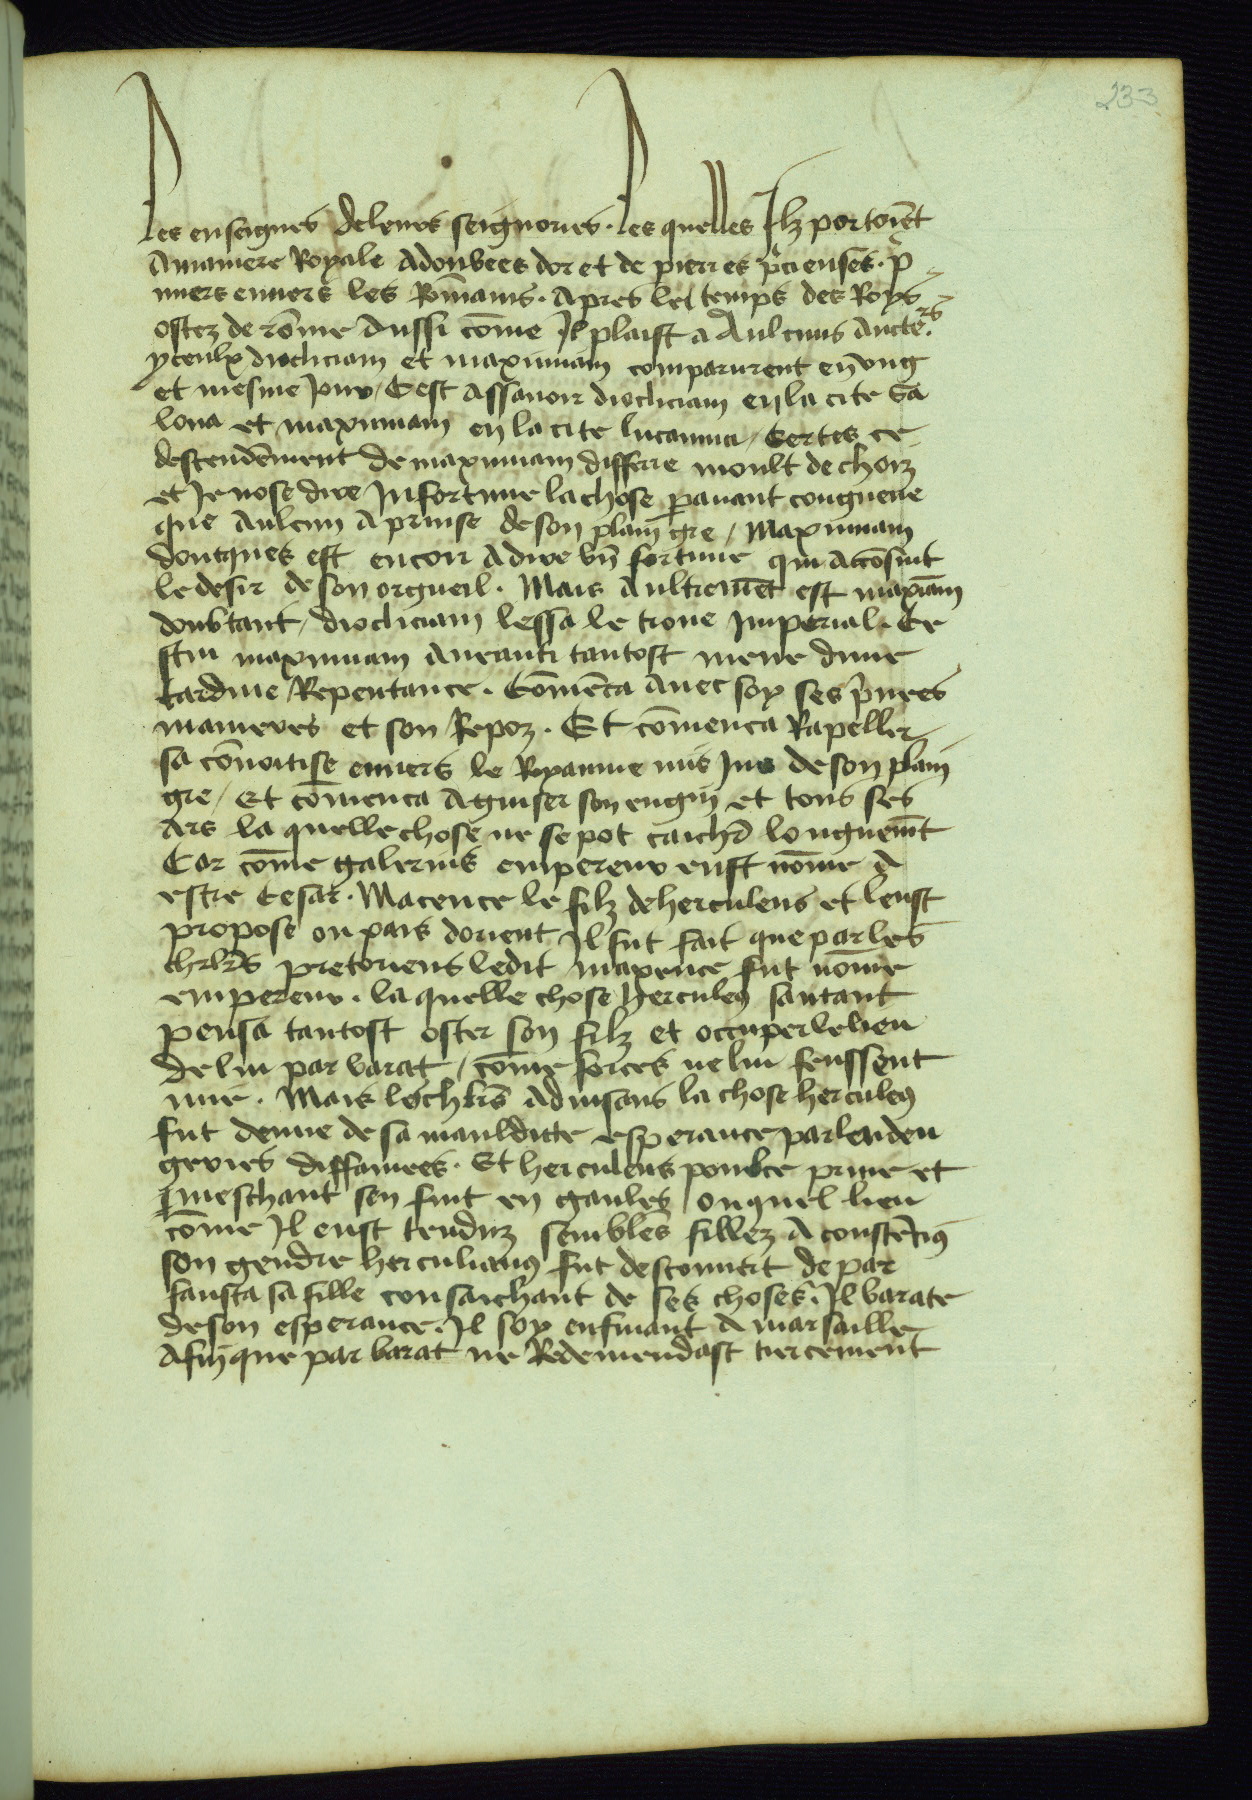 233
Les enseignes de leurs seignories. Les quelles Ilz portoiēt
A maniere Royale Adoubees dor et de pierres p̄cieuses. p̄
miers enuers les Rōmains. Apres le temps des Roys
ostez de rōme Aussi cōme Il plaist a Aulcuns Aucters
yceulx diocliciam et maximiam comparurent en vng
et mesme Jour / Cest Assauoir diocliciam en la cite Sa
lona et maximiam en la cite lucannia / Certes ce
descendēment de maximiam differe moult de choiz
et Je nose dire Infortune la chose p̄auant congneue
que Aulcun A prinse de son plain gre / Maximiam
doncques est encor A dire bn̄ fortune qui Accōsuit
le desir de son orgueil. Mais Aultremēt est maxiām
doubtant / diocliciam lessa le trone Imperial. Ce
stui maximiam Aneanti tantost mene dune
tardiue Repentance. Cōmēca Auec soy ses p̄mieres
manieres et son Repoz. Et cōmenca Rapeller
sa cōuoitise enuers le Royaume mis Jus de son plain
gre / Et cōmenca Aguiser son engin et tous ses
Ars la quelle chose ne se pot caichr̄ longuemt̄
Car cōme galerius empereur eust nōme A
estre Cesar. Macence le filz de herculeus et leust
propose ou pais dorient Il fut fait que par les
chrl̄rs pretoriens ledit maxence fut nōme
empereur. la quelle chose herculeus saitant
pensa tantost oster son filz et occuper le lieu
de lui par barat / cōme forces ne lui feussent
mie. Mais les chl̄rs Aduisans la chose herculeus
fut denue de sa mauldicte esperance par lenden
gevies diffamees. Et herculeus poubre priue et
meschant sen fuit en gaules / ouquel lieu
cōme Il eust tenduz semblēs fillez A constētius
son gendre herculianus fut descouuert de par
fausta sa fille consaichant de ses choses. Il barate
de son esperance. Il soy enfuiant A marsaille
Afin que par barat ne Redemendast tiercement